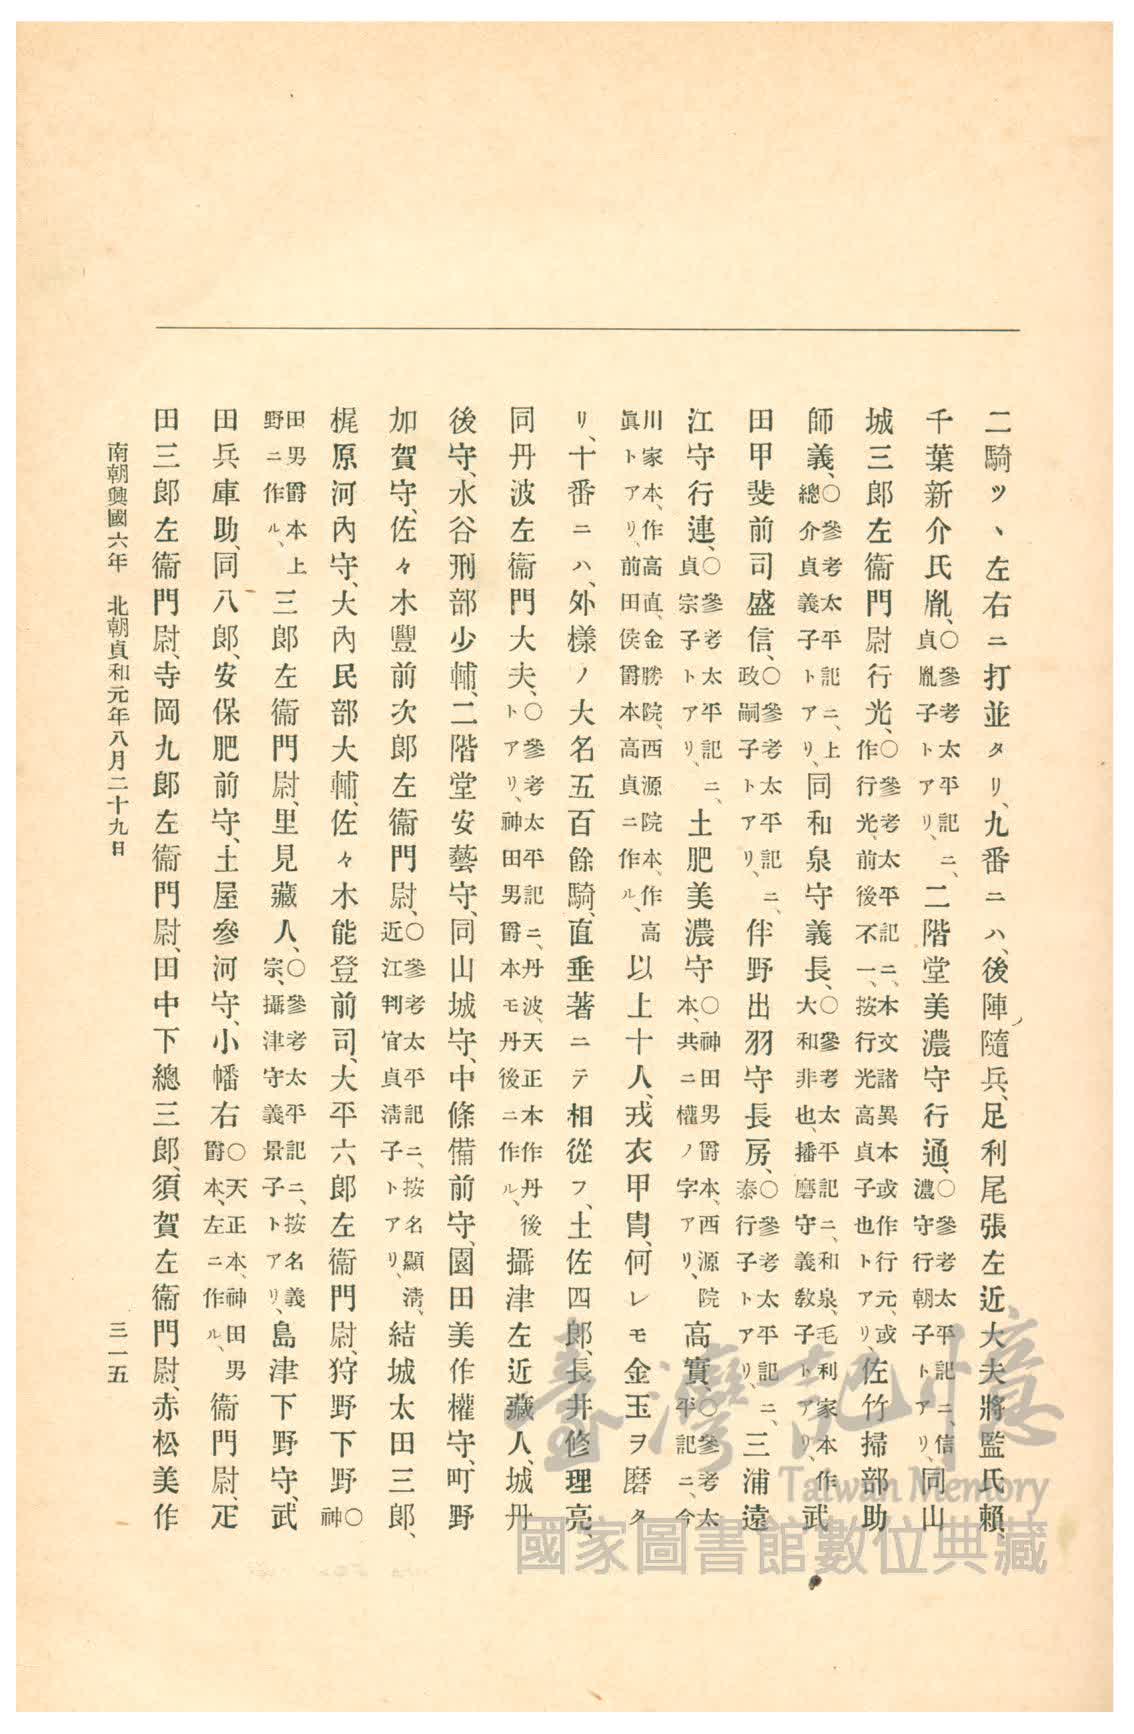 二騎ツヽ左右ニ打並タリ、九番ニハ、後陣隨兵、足利尾張左近大夫將監氏賴、
千葉新介氏胤、○參考太平記ニ、貞胤子トアリ、二階堂美濃守行通、○參考太平記ニ、信濃守行朝子トアリ、同山
城三郎左衞門尉行光、○參考太平記ニ、本文諸異本或作行元、或作行光、前後不一、按行光高貞子也トアリ、佐竹掃部助
師義、○參考太平記ニ、上總介貞義子トアリ、同和泉守義長、○參考太平記ニ、和泉、毛利家本作武大和非也、播磨守義敎子トアリ、武
田甲斐前司盛信、○參考太平記ニ、政嗣子トアリ、伴野出羽守長房、○參考太平記ニ、泰行子トアリ、三浦遠
江守行連、○參考太平記ニ、貞宗子トアリ、土肥美濃守○神田男爵本、西源院本、共ニ權ノ字アリ、高實、○參考太平記ニ、今
川家本、作高直、金勝院、西源院本、作高眞トアリ、前田侯爵本高貞ニ作ル、以上十人、戎衣甲冑、何レモ金玉ヲ磨タ
リ、十番ニハ、外樣ノ大名五百餘騎、直垂著ニテ相從フ、土佐四郎、長井修理亮、
同丹波左衞門大夫、○參考太平記ニ、丹波、天正本作丹後トアリ、神田男爵本モ丹後ニ作ル、攝津左近藏人、城丹
後守、水谷刑部少輔、二階堂安藝守、同山城守、中條備前守、園田美作權守、町野
加賀守、佐々木豐前次郎左衞門尉、○參考太平記ニ、按名顯淸、近江判官貞淸子トアリ、結城太田三郎、
梶原河內守、大內民部大輔、佐々木能登前司、大平六郎左衞門尉、狩野下野○神
田男爵本上野ニ作ル、三郎左衞門尉、里見藏人、○參考太平記ニ、按名義宗、攝津守義景子トアリ、島津下野守、武
田兵庫助、同八郎、安保肥前守、土屋參河守、小幡右○天正本、神田男爵本、左ニ作ル、衞門尉、疋
田三郎左衞門尉、寺岡九郎左衞門尉、田中下總三郎、須賀左衞門尉、赤松美作
南朝興國六年 北朝貞和元年八月二十九日
三一五
臺灣記憶
Taiwan Memory
國家圖書館數位典藏